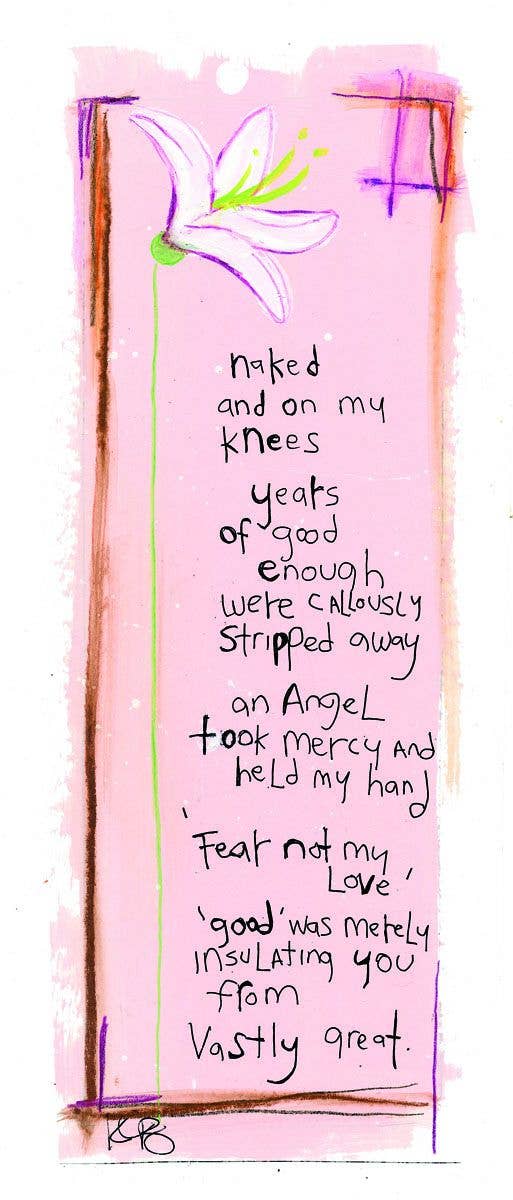 naked
and on my
knees
years
of good
enough
were CALLOUSLY
stripped away
an Angel
took mercy and
held my hand
'Fear not my
Love'
'good' was merely
insulating you
from
Vastly great.